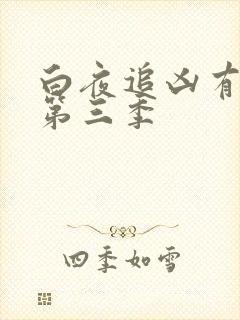 白夜追凶有
第三季
四季如雪